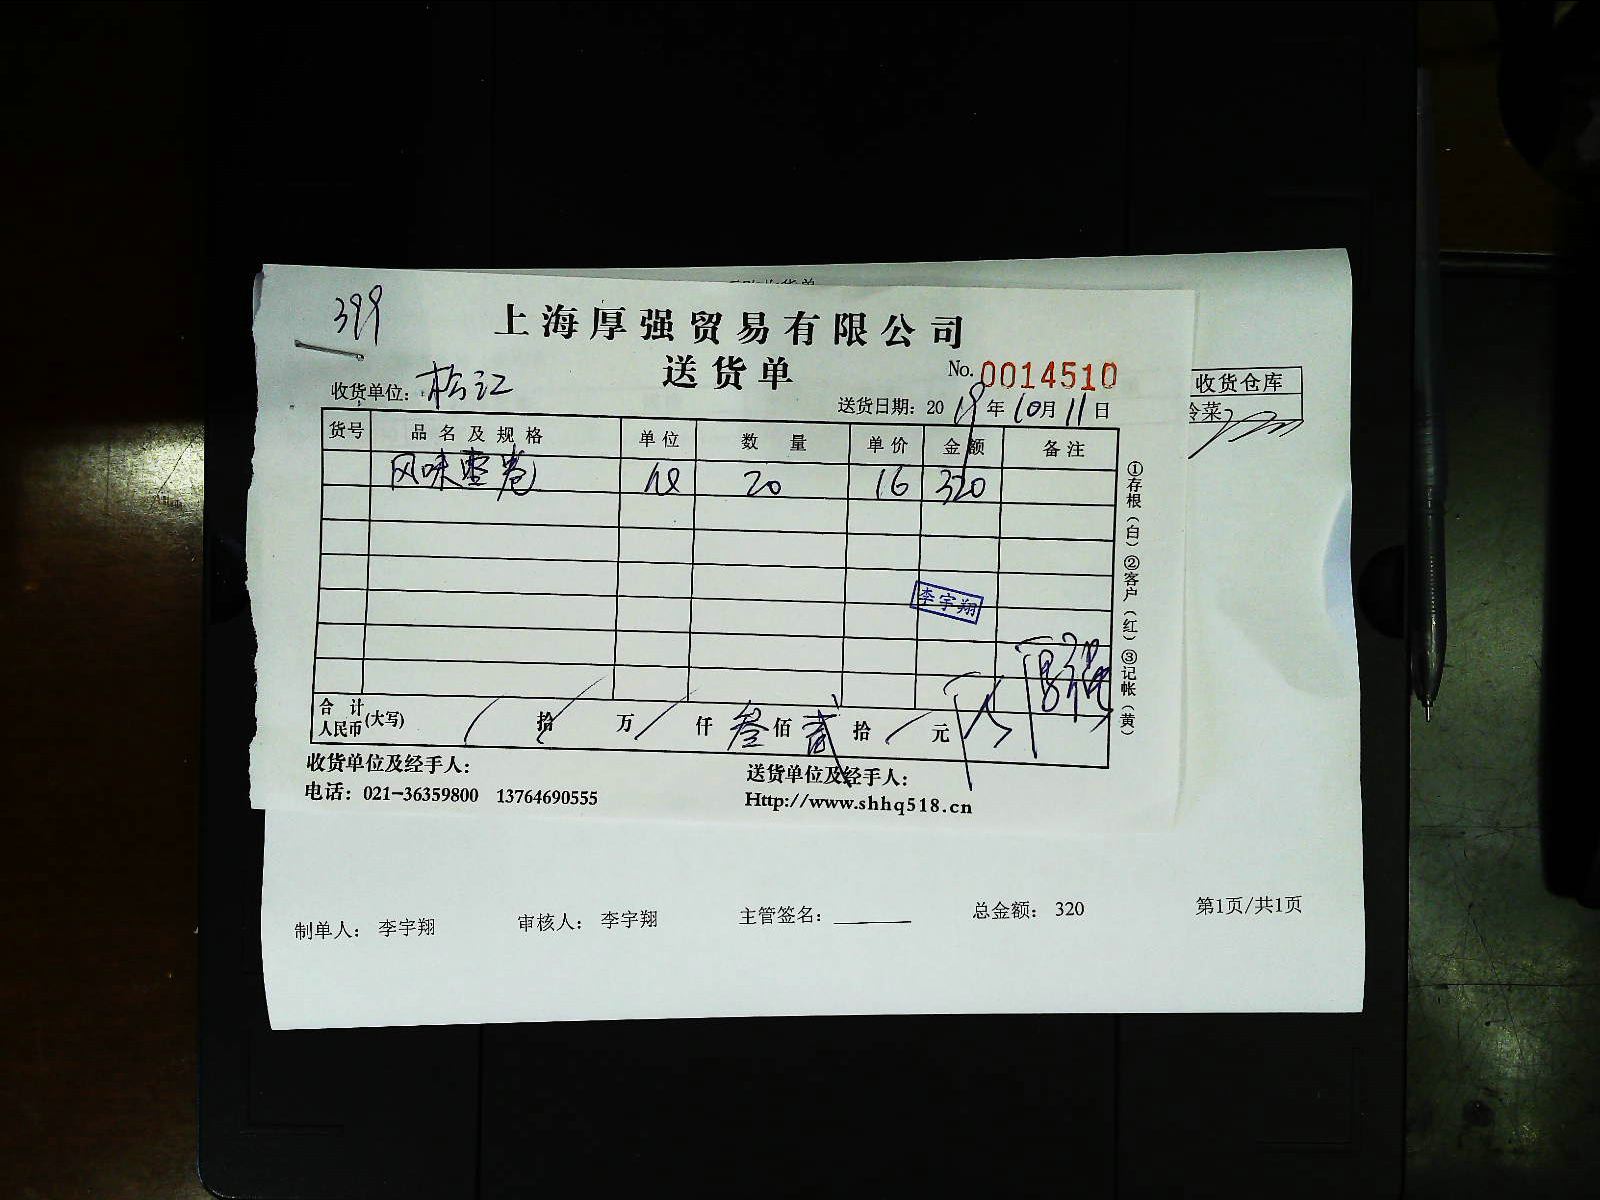 399
上海厚强贸易有限公司
送货单
No. 0014510
收货单位: 松江
送货日期: 2019年10月11日
收货仓库
冷菜
货号 品名及规格 单位 数量 单价 金额 备注
风味枣卷 20 16 320
李宇翔
合计人民币(大写) / 拾 / 万 / 仟 叁 佰 贰 拾 / 元
①存根(白)②客户(红)③记帐(黄)
收货单位及经手人:
送货单位及经手人:
电话: 021-36359800 13764690555
Http://www.shhq518.cn
制单人: 李宇翔 审核人: 李宇翔 主管签名: 总金额: 320 第1页/共1页